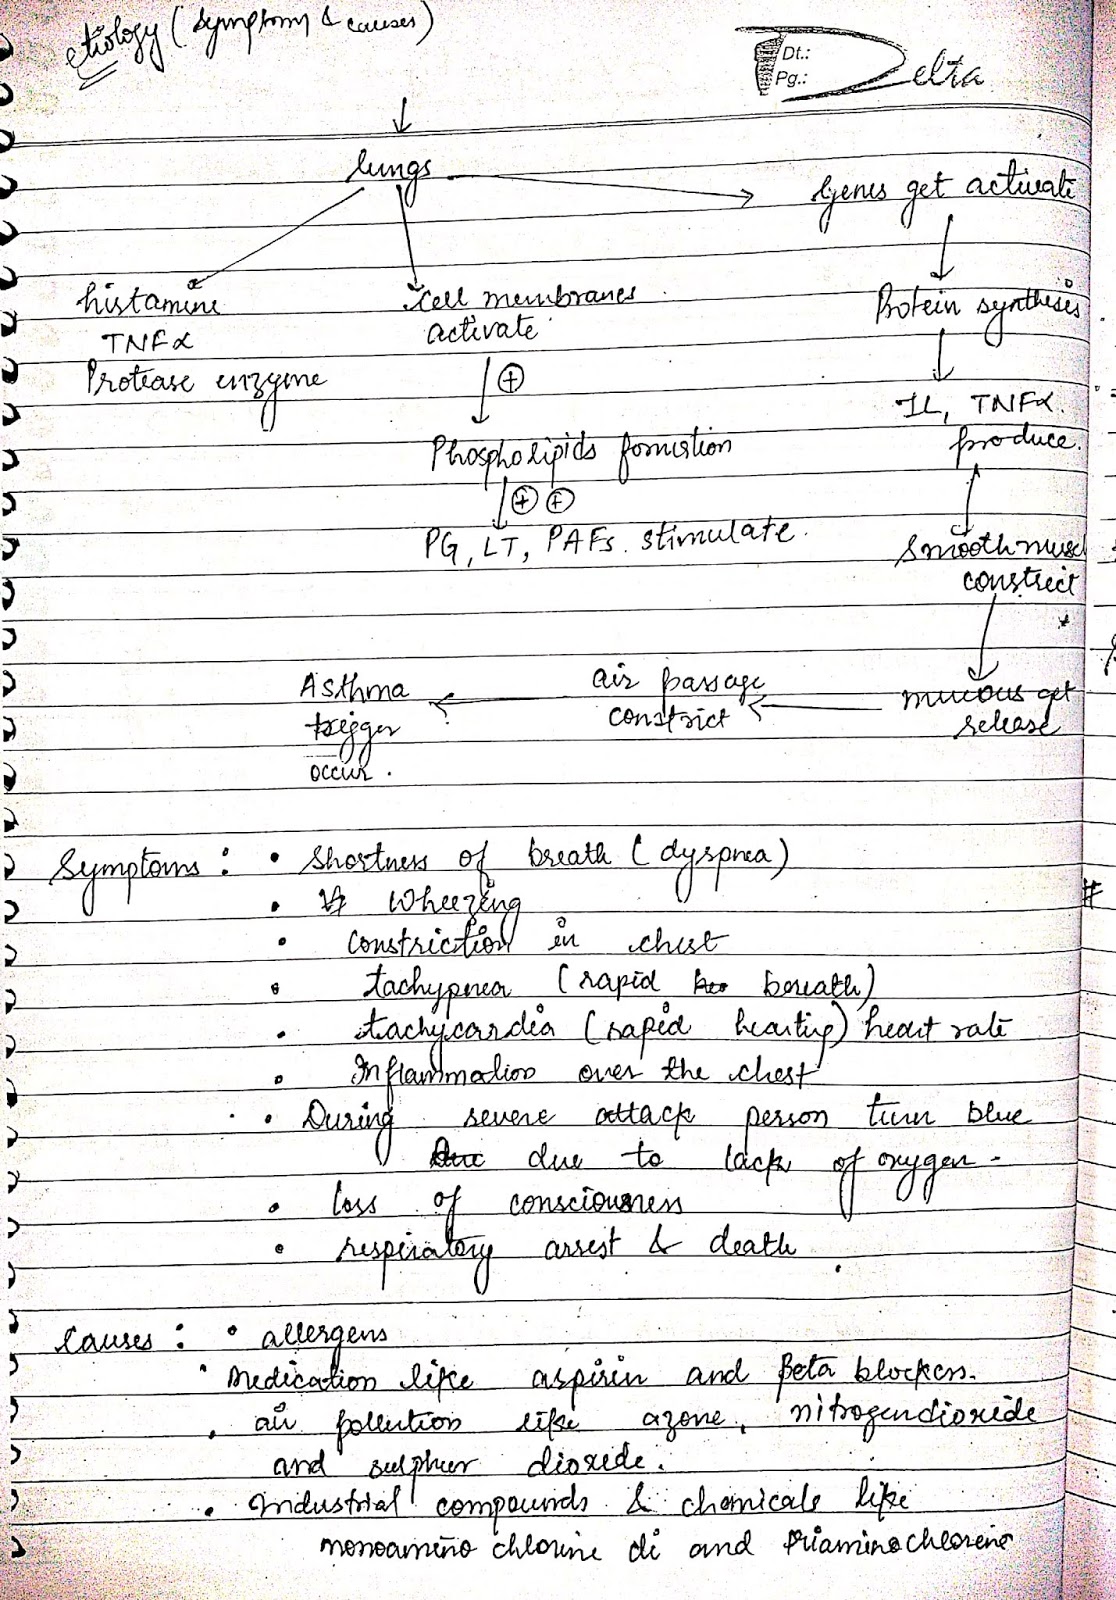 etiology (symptoms & causes)
Dt.:
Pg.:
Delta
lungs
Genes get activate
histamine
TNFα
Protease enzyme
Cell membranes
activate
⊕
Phospholipids formation
⊕ ⊕
PG, LT, PAFs stimulate.
Protein synthesis
IL, TNFα
produce.
Smooth musc
constrict
mucous get
release
air passage
constrict
Asthma
trigger
occur.
Symptoms : • Shortness of breath (dyspnea)
• Wheezing
• constriction in chest
• tachypnea (rapid breath)
• tachycardia (rapid heartip) heart rate
• Inflammation over the chest
• During severe attack person turn blue
due to lack of oxygen.
• loss of consciousness
• respiratory arrest & death
#
Causes : • allergens
• Medication like aspirin and Beta blockers.
• air pollution like azone, nitrogendioxide
and sulpher dioxide.
• Industrial compounds & chemicals like
monoamino chlorine di and triaminochlorene